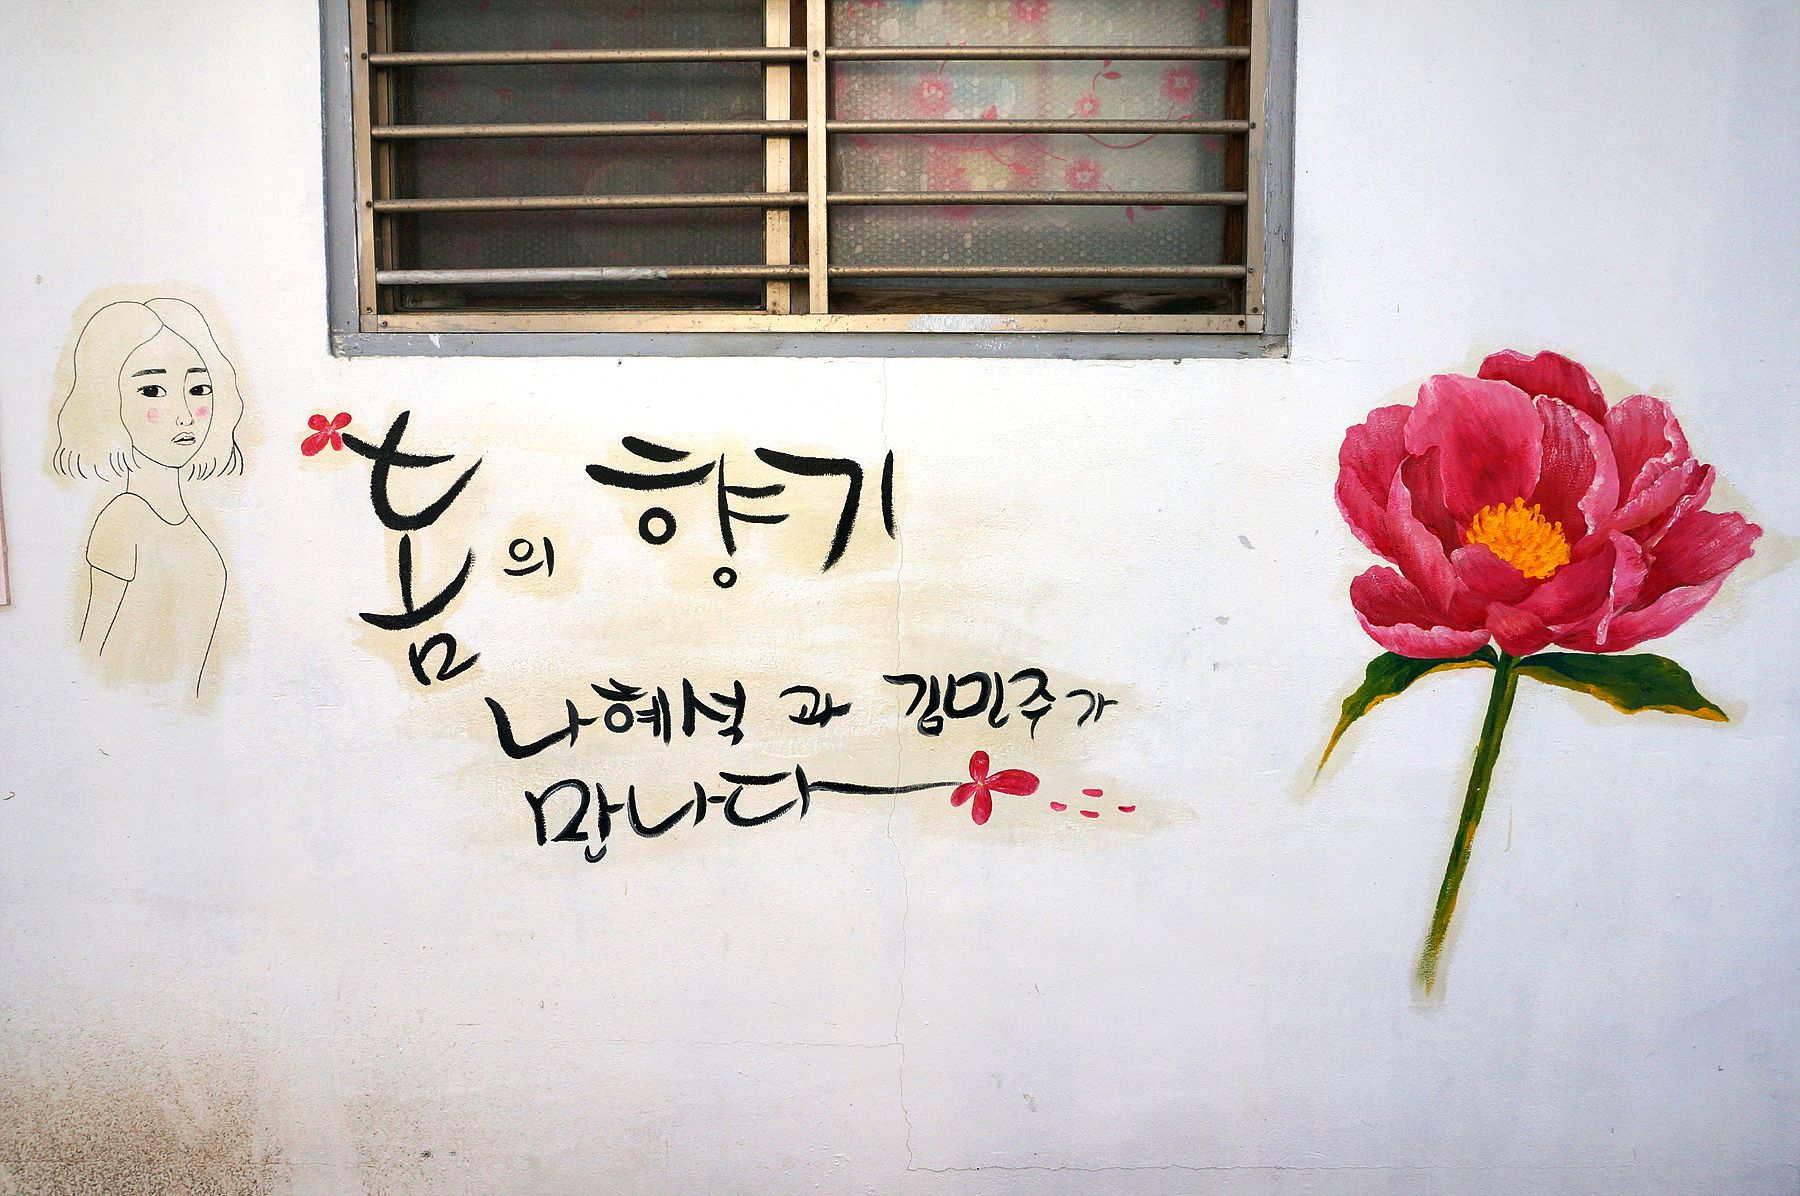 봄의 향기
나혜석 과 김민주가
만나다